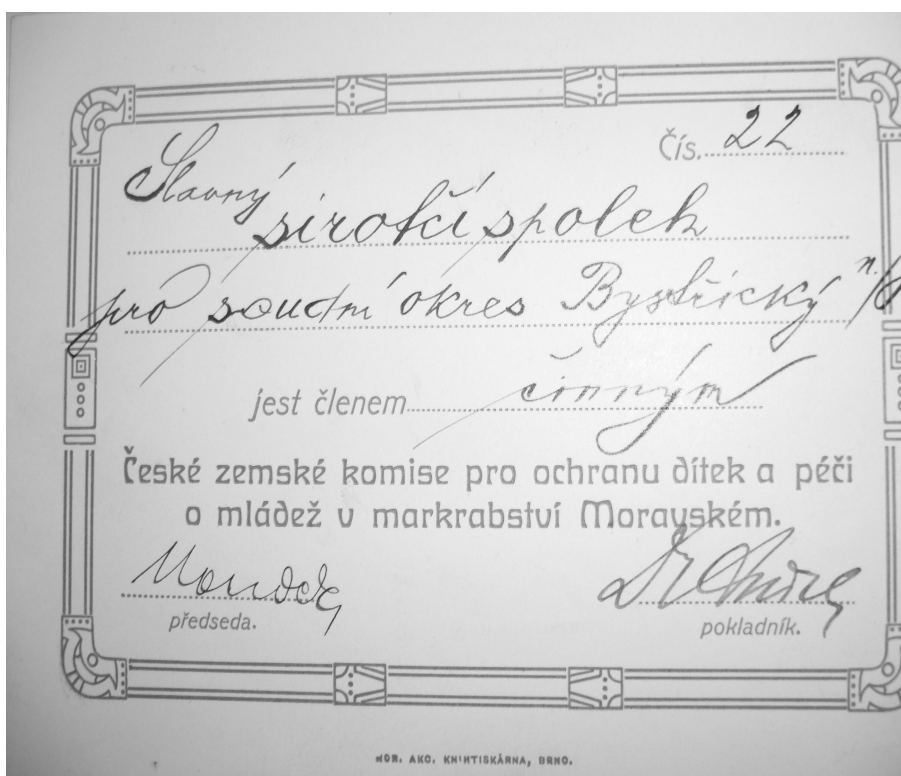 Čís. 22
Slavný
sirotčí spolek
pro soudní okres Bystřický n/
jest členem činným
České zemské komise pro ochranu dítek a péči
o mládež v markrabství Moravském.
předseda. pokladník.
MOR. AKC. KNIHTISKÁRNA, BRNO.